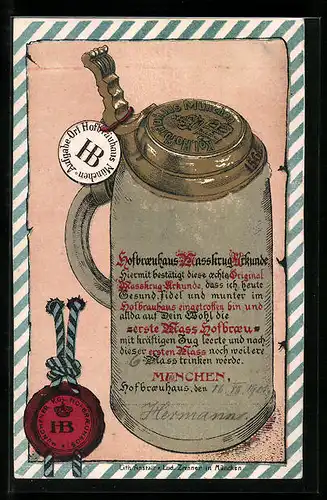 Kgl. Hofbräuhaus München
Aufgabe-Ort Hofbräuhaus München
HB
Hofbræuhaus Masskrug Urkunde.
Hiermit bestätigt diese echte Original
Masskrug Urkunde, dass ich heute
Gesund, fidel und munter im
Hofbrauhaus eingetroffen bin und
allda auf Dein Wohl die
erste Mass Hofbræu
mit kräftigen Zug leerte und nach
dieser ersten Mass noch weitere
6 Mass trinken werde.
MÜNCHEN,
Hofbræuhaus, den 16.
Hermann
HB
Lith. Anstalt v. Lud. Zrenner in München